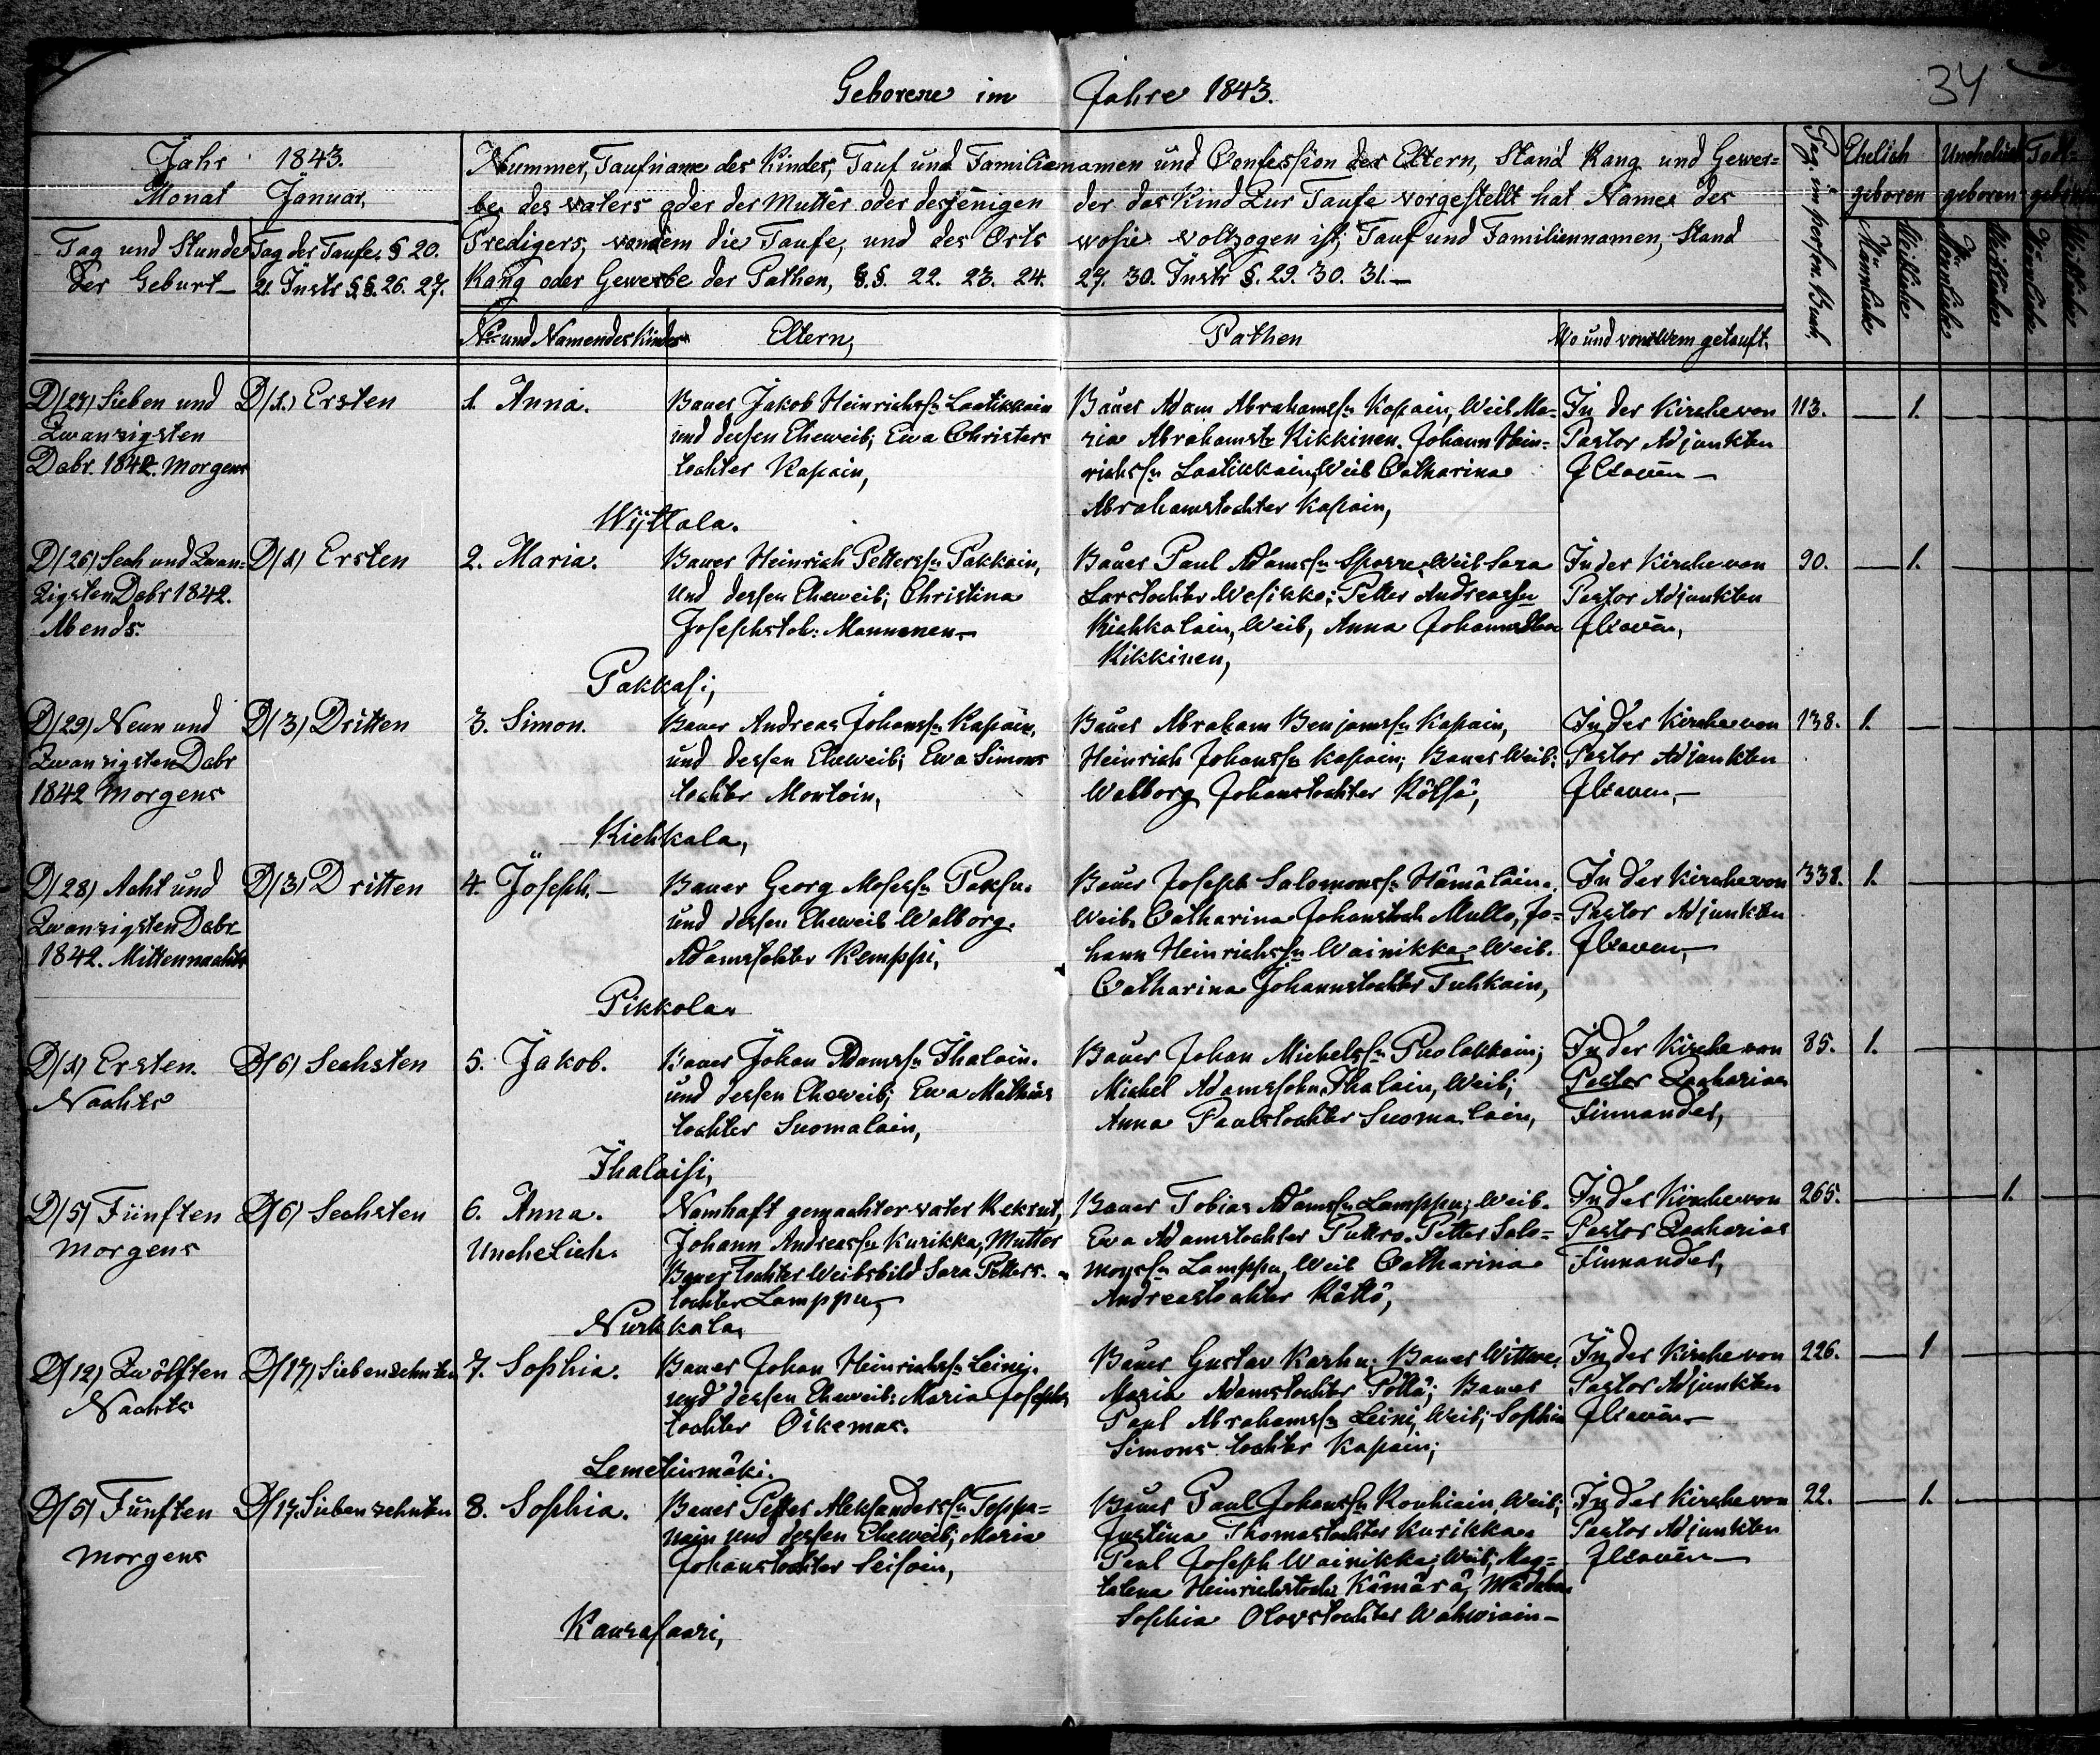 Geborene im Jahre 1843.
34
Jahr 1843.
Monat Januar,
Tag und Stunde
der Geburt
Tag der Taufe. § 20.
21. Instr §§. 26. 27.
Nummer, Taufname des Kindes, Tauf und Familiennamen und Confession der Eltern, Stand Rang und Gewer=
be des vaters oder der Mutter oder desjenigen der das Kind Zur Taufe vorgestellt hat Name des
Predigers, von dem die Taufe, und des Orts wo sie volzogen ist, Tauf und Familiennamen, Stand
Rang oder Gewerbe der Pathen, §.§. 22. 23. 24. 27. 30. Instr §. 29. 30. 31.
No und Namen des Kindes
Eltern,
Pathen
Wo und von Wem getauft.
Pag. im person. Buch
Ehelich geboren
Unehelich geboren
Todt= geboren
Männliche
Weibliche
Männliche
Weibliche
Männliche
Weibliche
D/27) Sieben und
Zwanzigsten
Dabr. 1842. Morgens
D/1.) Ersten
1. Anna.
Bauer Jakob Heinrichssn Laatikkain
und dessen Eheweib; Ewa Christers
tochter Kapain,
Bauer Adam Abrahamssn Kapain, Weib Ma=
ria Abrahamstr Kikkinen. Johann Hein=
richssn Laatikkain, Weib Catharina
Abrahamstochter Kapain,
In der Kirche von
Pastor Adjunkten
113.
1.
Wÿttala.
D/26) Sech und Zwan=
zigsten Dabr 1842.
Abends.
D/1) Ersten
2. Maria.
Bauer Heinrich Petterssn Pakkain,
und dessen Eheweib; Christina
Josephstoh: Mannonen
Bauer Paul Adamssn Sporre, Weib Sara
Larstochter Wesikko; Petter Andreassn
Kiehkalain, Weib, Anna
Kikkinen,
In der Kirche von
Pastor Adjunkten
90.
1.
Pakkasi,
D/29) Neun und
Zwanzigsten Dabr
1842 Morgens
D/3) Dritten
3. Simon.
Bauer Andreas Johanssn Kapain,
und dessen Eheweib; Ewa Simons
tochter Montoin,
Bauer Abraham Benjamssn Kapain,
Heinrich Johanssn Kapain; Bauer Weib;
Walborg Johanstochter Kölhi,
In der Kirche von
Pastor Adjunkten
138.
1.
Kiehkala,
D/28) Acht und
Zwanzigsten Dabr
1842. Mittennachts
D/3) Dritten
4 Joseph.
Bauer Georg Mosessn Paksu.
und dessen Eheweib Walborg.
Adamstochter Kemppi,
Bauer Joseph Salomonssn Hämäläin.
Weib. Catharina Johanstoch Mullo, Jo=
hann Heinrichssn Wainikka, Weib.
Catharina Johannstochter Tuhkain,
In der Kirche von
Pastor Adjunkten
338.
1.
Pikkola
D/1) Ersten.
Nachts
D/6) Sechsten
5. Jakob.
Bauer Johan Adamssn Ihalain.
und dessen Eheweib; Ewa Mathias
tochter Suomalain,
Bauer Johan Michelssn Puolakkain;
Michel Adamssohn Ihalain, Weib;
Anna Paulstochter Suomalain,
In der Kirche von
Pastor Zacharias
Finnander,
85.
1.
Ihalaisi,
D/5) Fünften
Morgens
D/6) Sechsten
6. Anna.
Unehelich.
Namhaft gemachter vater Rekrut,
Johann Andreassn Kurikka, Mutter
Bauer tochter Weibsbild Sara Petters.
tochter Lamppu,
Bauer Tobias Adamssn Lamppu; Weib.
Ewa Adamstochter Puttro. Petter Salo=
monssn Lamppu, Weib Catharina
Andreastochter Kättö,
In der Kirche von
Pastor Zacharias
Finnander,
265.
1.
Nurkkala,
D/12) Zwölften
Nachts
D/17) Siebenzehnten
7. Sophia.
Bauer Johan Heinrichssn Leinj.
und dessen Eheweib; Maria Josephs
tochter Oikemas.
Bauer Gustav Karhu; Bauer Wittwe,
Maria Adamstochter Pöllä; Bauer
Paul Abrahamssn Leini, Weib; Sophia
Simons tochter Kapain;
In der Kirche von
Pastor Adjunkten
226.
1
Lemetinmäki.
D/5) Fünften
Morgens
D/17. Siebenzehnten
8. Sophia.
Bauer Petter Aleksanderssn Toppa=
nain und dessen Eheweib; Maria
Johanstochter Seisoin,
Bauer Paul Johanssn Rouhiain, Weib;
Justina Thomastochter Kurikka
Paul Joseph Wainikka; Weib; Mag=
talena Heinrichstoch Kämärä, Mädchen
Sophia Olovstochter Wahwiain
In der Kirche von
Pastor Adjunkten
22.
1.
Kaurasaari,